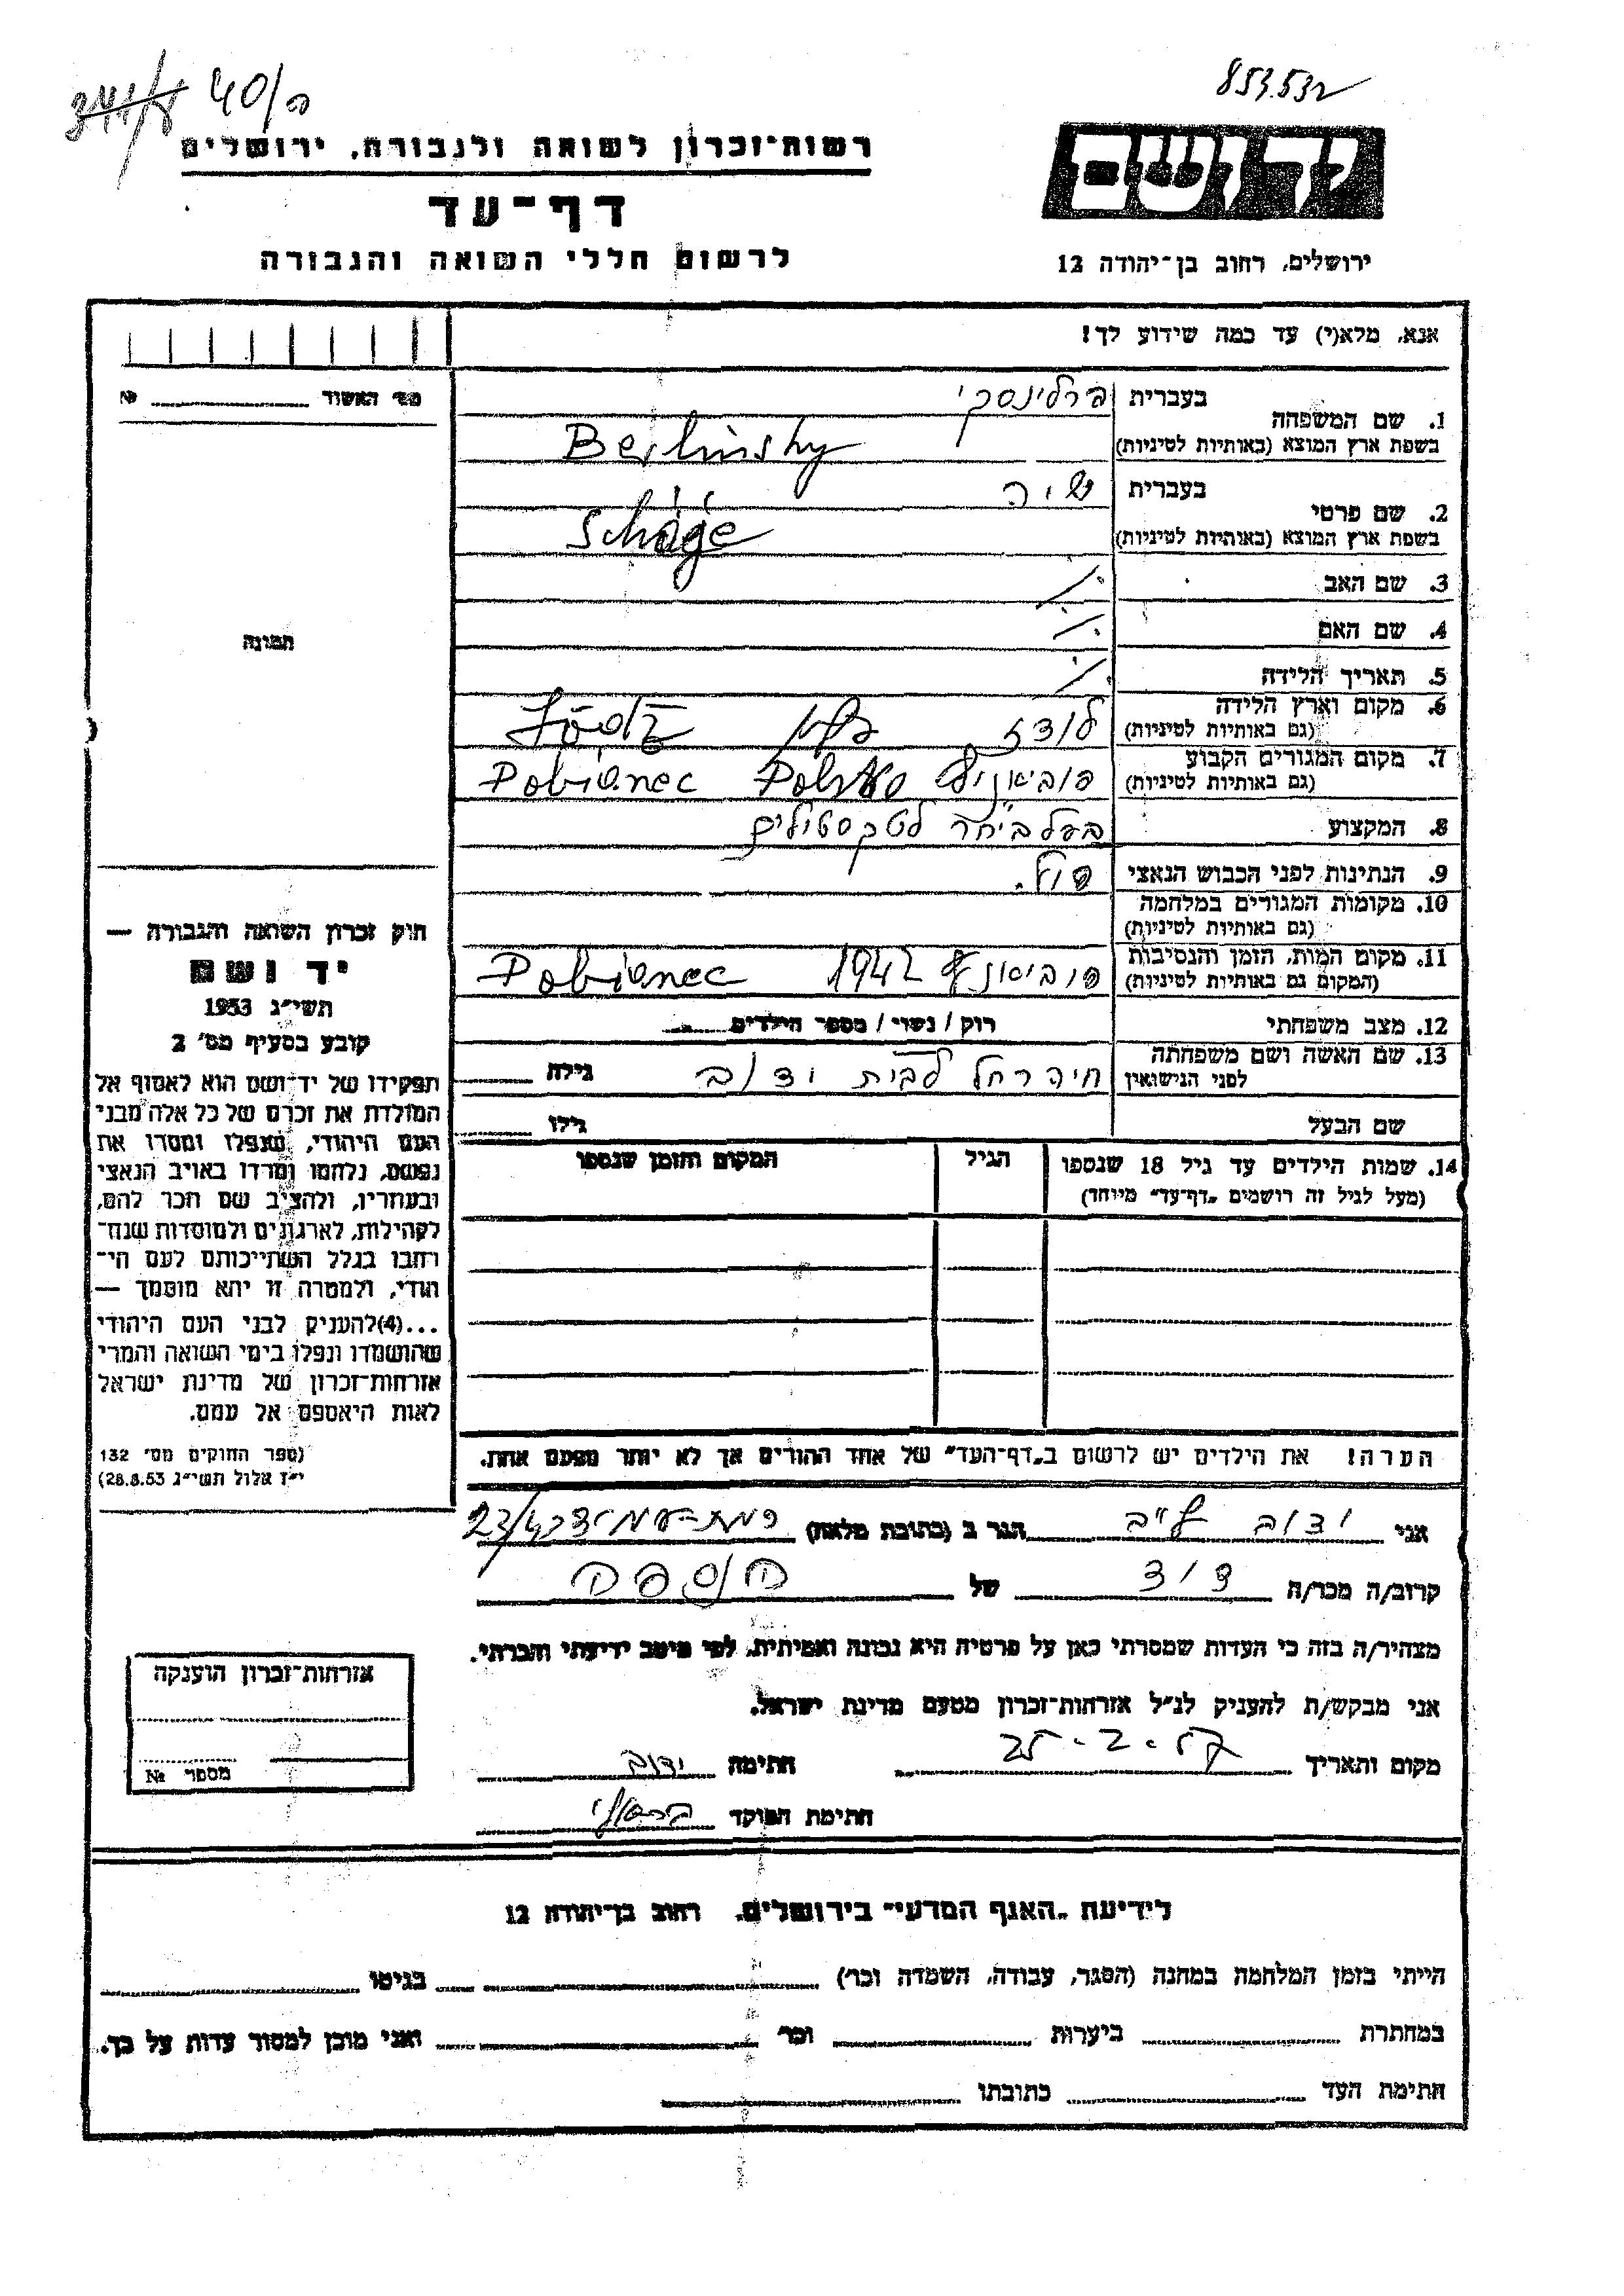 853.532
40/ה
רשות-זכרון לשואה ולגבורה, ירושלים
דף-עד
לרשום חללי השואה והגבורה
ידושם
ירושלים, רחוב בן-יהודה 12
אנא, מלא(י) עד כמה שידוע לך!
מס' האשור №
1. שם המשפחה בעברית ברלינסקי
בשפת ארץ המוצא (באותיות לטיניות) Berlinsky
2. שם פרטי בעברית שיה
בשפת ארץ המוצא (באותיות לטיניות) Schäje
3. שם האב
4. שם האם
5. תאריך הלידה
6. מקום וארץ הלידה (גם באותיות לטיניות) לודז
7. מקום המגורים הקבוע (גם באותיות לטיניות) Pobianec
8. המקצוע בעל ביח"ר לטקסטילים
9. הנתינות לפני הכבוש הנאצי פול.
10. מקומות המגורים במלחמה (גם באותיות לטיניות)
11. מקום המות, הזמן והנסיבות (המקום גם באותיות לטיניות) 1942 Pobianec
12. מצב משפחתי רוק / נשוי / מספר הילדים
13. שם האשה ושם משפחתה לפני הנישואין חיה רחל לבית ודוב גילה
שם הבעל גילו
14. שמות הילדים עד גיל 18 שנספו (מעל לגיל זה רושמים "דף-עד" מיוחד) הגיל המקום והזמן שנספו
הערה! את הילדים יש לרשום ב"דף-העד" של אחד ההורים אך לא יותר מפעם אחת.
תמונה
חוק זכרון השואה והגבורה —
יד ושם
תשי"ג 1953
קובע בסעיף מס' 2
תפקידו של יד-ושם הוא לאסוף אל
המולדת את זכרם של כל אלה מבני
העם היהודי, שנפלו ומסרו את
נפשם, נלחמו ומרדו באויב הנאצי
ובעוזריו, ולהציב שם וזכר להם,
לקהילות, לארגונים ולמוסדות שנח-
רבו בגלל השתייכותם לעם הי-
הודי, ולמטרה זו יהא מוסמך —
...(4)להעניק לבני העם היהודי
שהושמדו ונפלו בימי השואה והמרי
אזרחות-זכרון של מדינת ישראל
לאות היאספם אל עמם.
(ספר החוקים מס' 132
י"ז אלול תשי"ג 28.8.53)
אני ודוב הגר ב (כתובת מלאה) 23/
קרוב/ה מכר/ה דוד של הנספה
מצהיר/ה בזה כי העדות שמסרתי כאן על פרטיה היא נכונה ואמיתית, לפי מיטב ידיעתי והכרתי.
אני מבקש/ת להעניק לנ"ל אזרחות-זכרון מטעם מדינת ישראל.
מקום ותאריך חתימה ודוב
חתימת הפוקד
אזרחות-זכרון הוענקה
מספר №
לידיעת "האגף המדעי" בירושלים, רחוב בן-יהודה 12
הייתי בזמן המלחמה במחנה (הסגר, עבודה, השמדה וכר) בגיטו
במחתרת ביערות וכר ואני מוכן למסור עדות על כך.
חתימת העד כתובתו